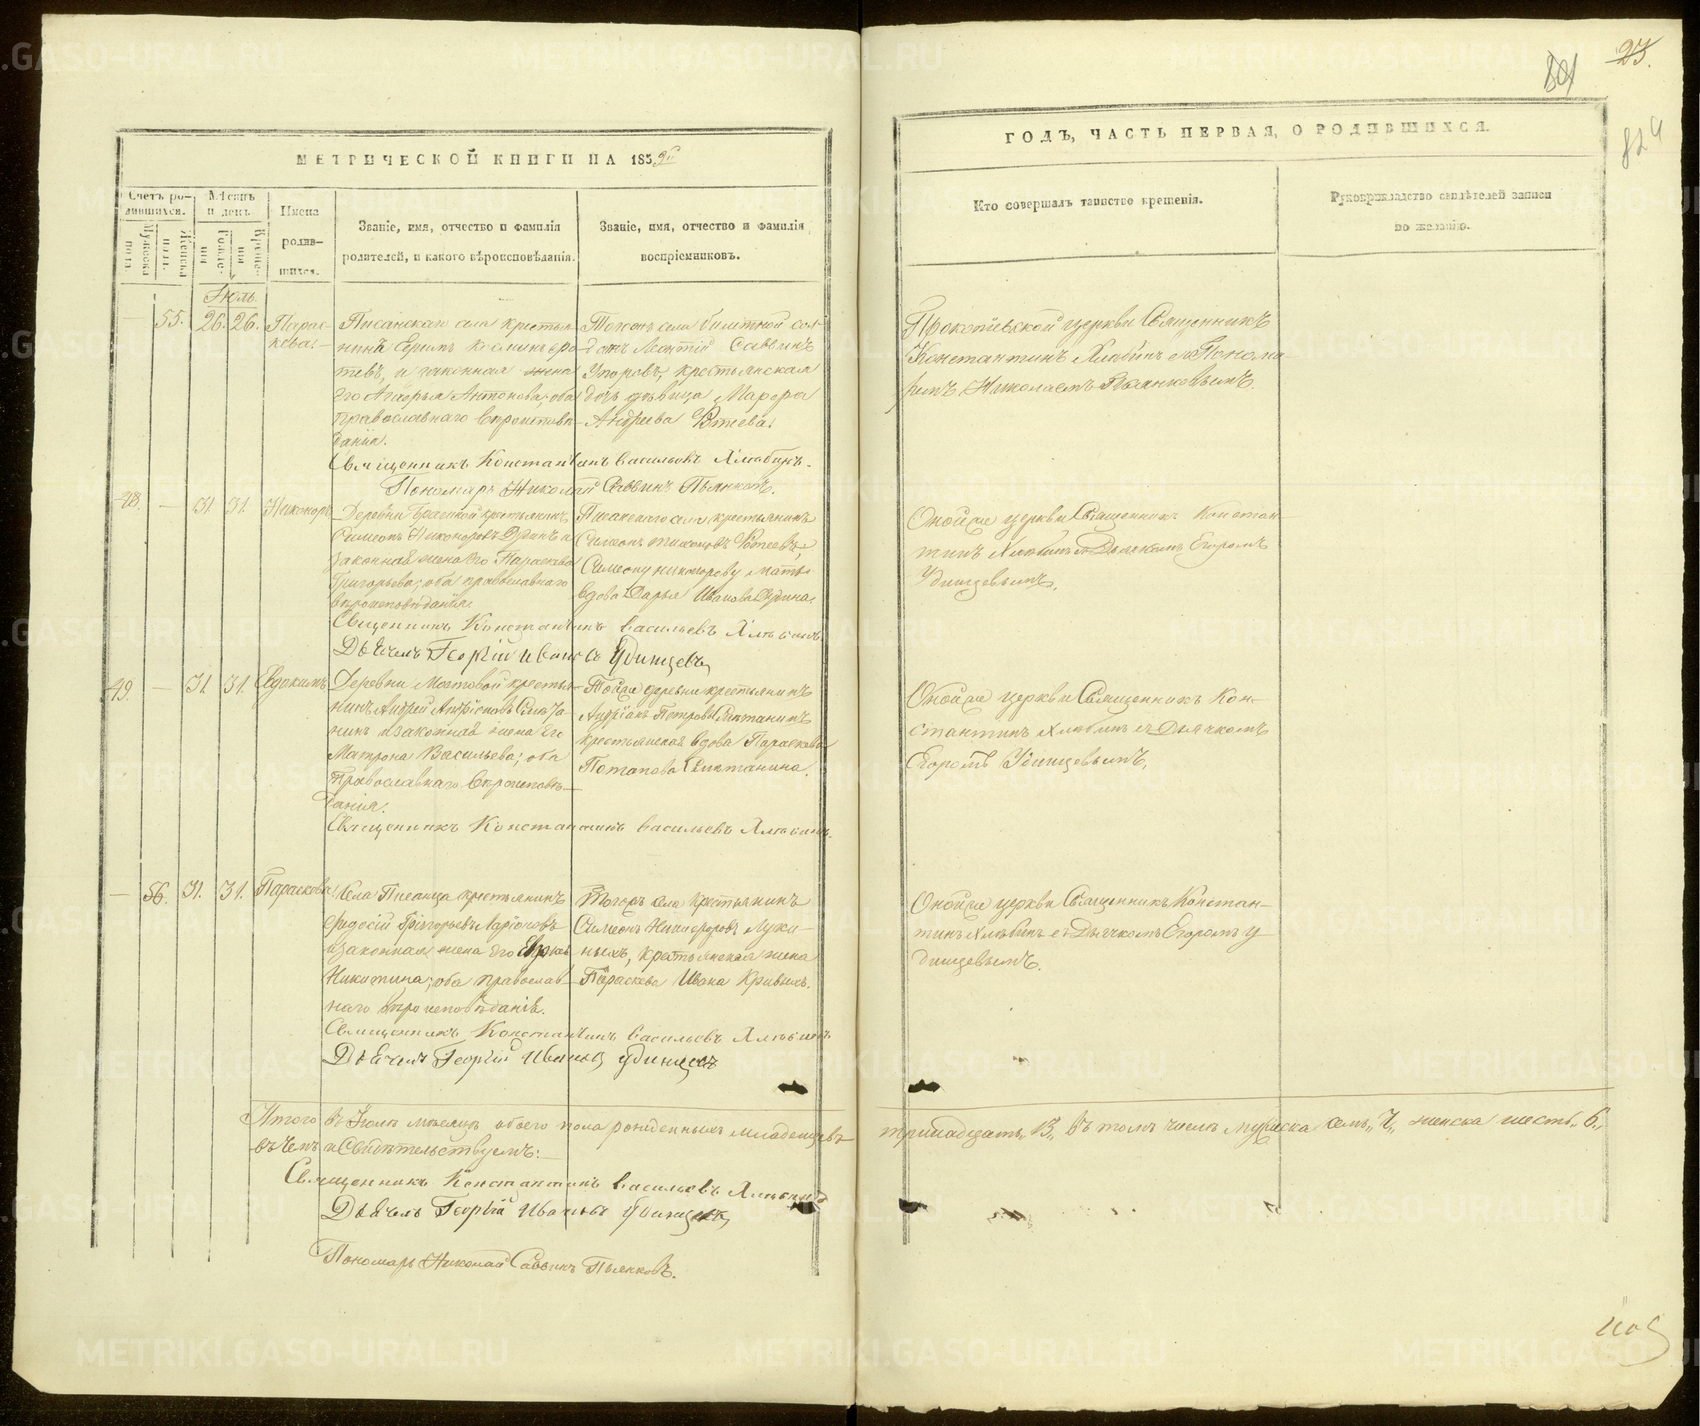 23.
824
МЕТРИЧЕСКОЙ КНИГИ НА 185
ГОДЪ, ЧАСТЬ ПЕРВАЯ, О РОДИВШИХСЯ.
Счетъ ро-
дившихся.
Мужеска
пола
Женска
пола.
Мѣсяцъ
и день.
Рожде-
нія
Креще-
нія
Имена
родив-
шихся.
Званіе, имя, отчество и фамилія
родителей, и какого вѣроисповѣданія.
Званіе, имя, отчество и фамилія
воспріемниковъ.
Кто совершалъ таинство крещенія.
Рукоприкладство свидѣтелей записи
по желанію.
Іюль.
55. 26. 26. Парас-
кева.
Писанскаго села крестья-
нинъ
и законная жена
его Антонова; оба
православнаго вѣроисповѣ-
данія.
Тогожъ села билетной сол-
датъ Леонтій Саввинъ
Упоровъ, крестьянская
дочь дѣвица Марѳа
Андреева Ѳотеева.
Прокопіевской церкви Священникъ
Константинъ Хлюбинъ съ Понома-
ремъ Николаемъ Пьянковымъ.
Священникъ Константинъ Васильевъ Хлюбинъ.
Пономарь Николай Саввинъ Пьянковъ.
48. — 31. 31. Никоноръ
Деревни крестьянинъ
Симеонъ Никоноровъ и
законная жена его Параскева
Григорьева; оба православнаго
вѣроисповѣданія.
Писанскаго села крестьянинъ
Симеонъ Ѳотеевъ,
Симеону Никонорову мать
вдова Дарья Иванова
Онойже церкви Священникъ Констан-
тинъ Хлюбинъ съ Дьячкомъ Егоромъ
Удинцевымъ.
Священникъ Константинъ Васильевъ Хлюбинъ
Дьячекъ Георгій Ивановъ Удинцевъ
49. — 31. 31. Евдокимъ
Деревни Мостовой крестья-
нинъ Андрей
и законная жена его
Матрона Васильева; оба
православнаго вѣроисповѣ-
данія.
Тойже деревни крестьянинъ
Андріанъ Петровъ
крестьянская вдова Параскева
Потапова
Онойже церкви Священникъ Кон-
стантинъ Хлюбинъ съ Дьячкомъ
Егоромъ Удинцевымъ.
Священникъ Константинъ Васильевъ Хлюбинъ.
— 56. 31. 31. Параскева
Села Писанца крестьянинъ
Ѳедосій Григорьевъ Ларіоновъ
и законная жена его
Никитина; оба православ-
наго вѣроисповѣданія.
Тогожъ села крестьянинъ
Симеонъ Никифоровъ Луки-
ныхъ, крестьянская жена
Параскева Ивана Кривыхъ.
Онойже церкви Священникъ Констан-
тинъ Хлюбинъ съ Дьячкомъ Егоромъ У-
динцевымъ.
Священникъ Константинъ Васильевъ Хлюбинъ
Дьячекъ Георгій Ивановъ Удинцевъ
Итого въ Іюлѣ мѣсяцѣ обоего пола рожденныхъ младенцевъ тринадцать, 13, въ томъ числѣ мужеска семь, 7, женска шесть, 6,
въ чемъ и свидѣтельствуемъ:
Священникъ Константинъ Васильевъ Хлюбинъ
Дьячекъ Георгій Ивановъ Удинцевъ
Пономарь Николай Саввинъ Пьянковъ.
METRIKI.GASO-URAL.RU